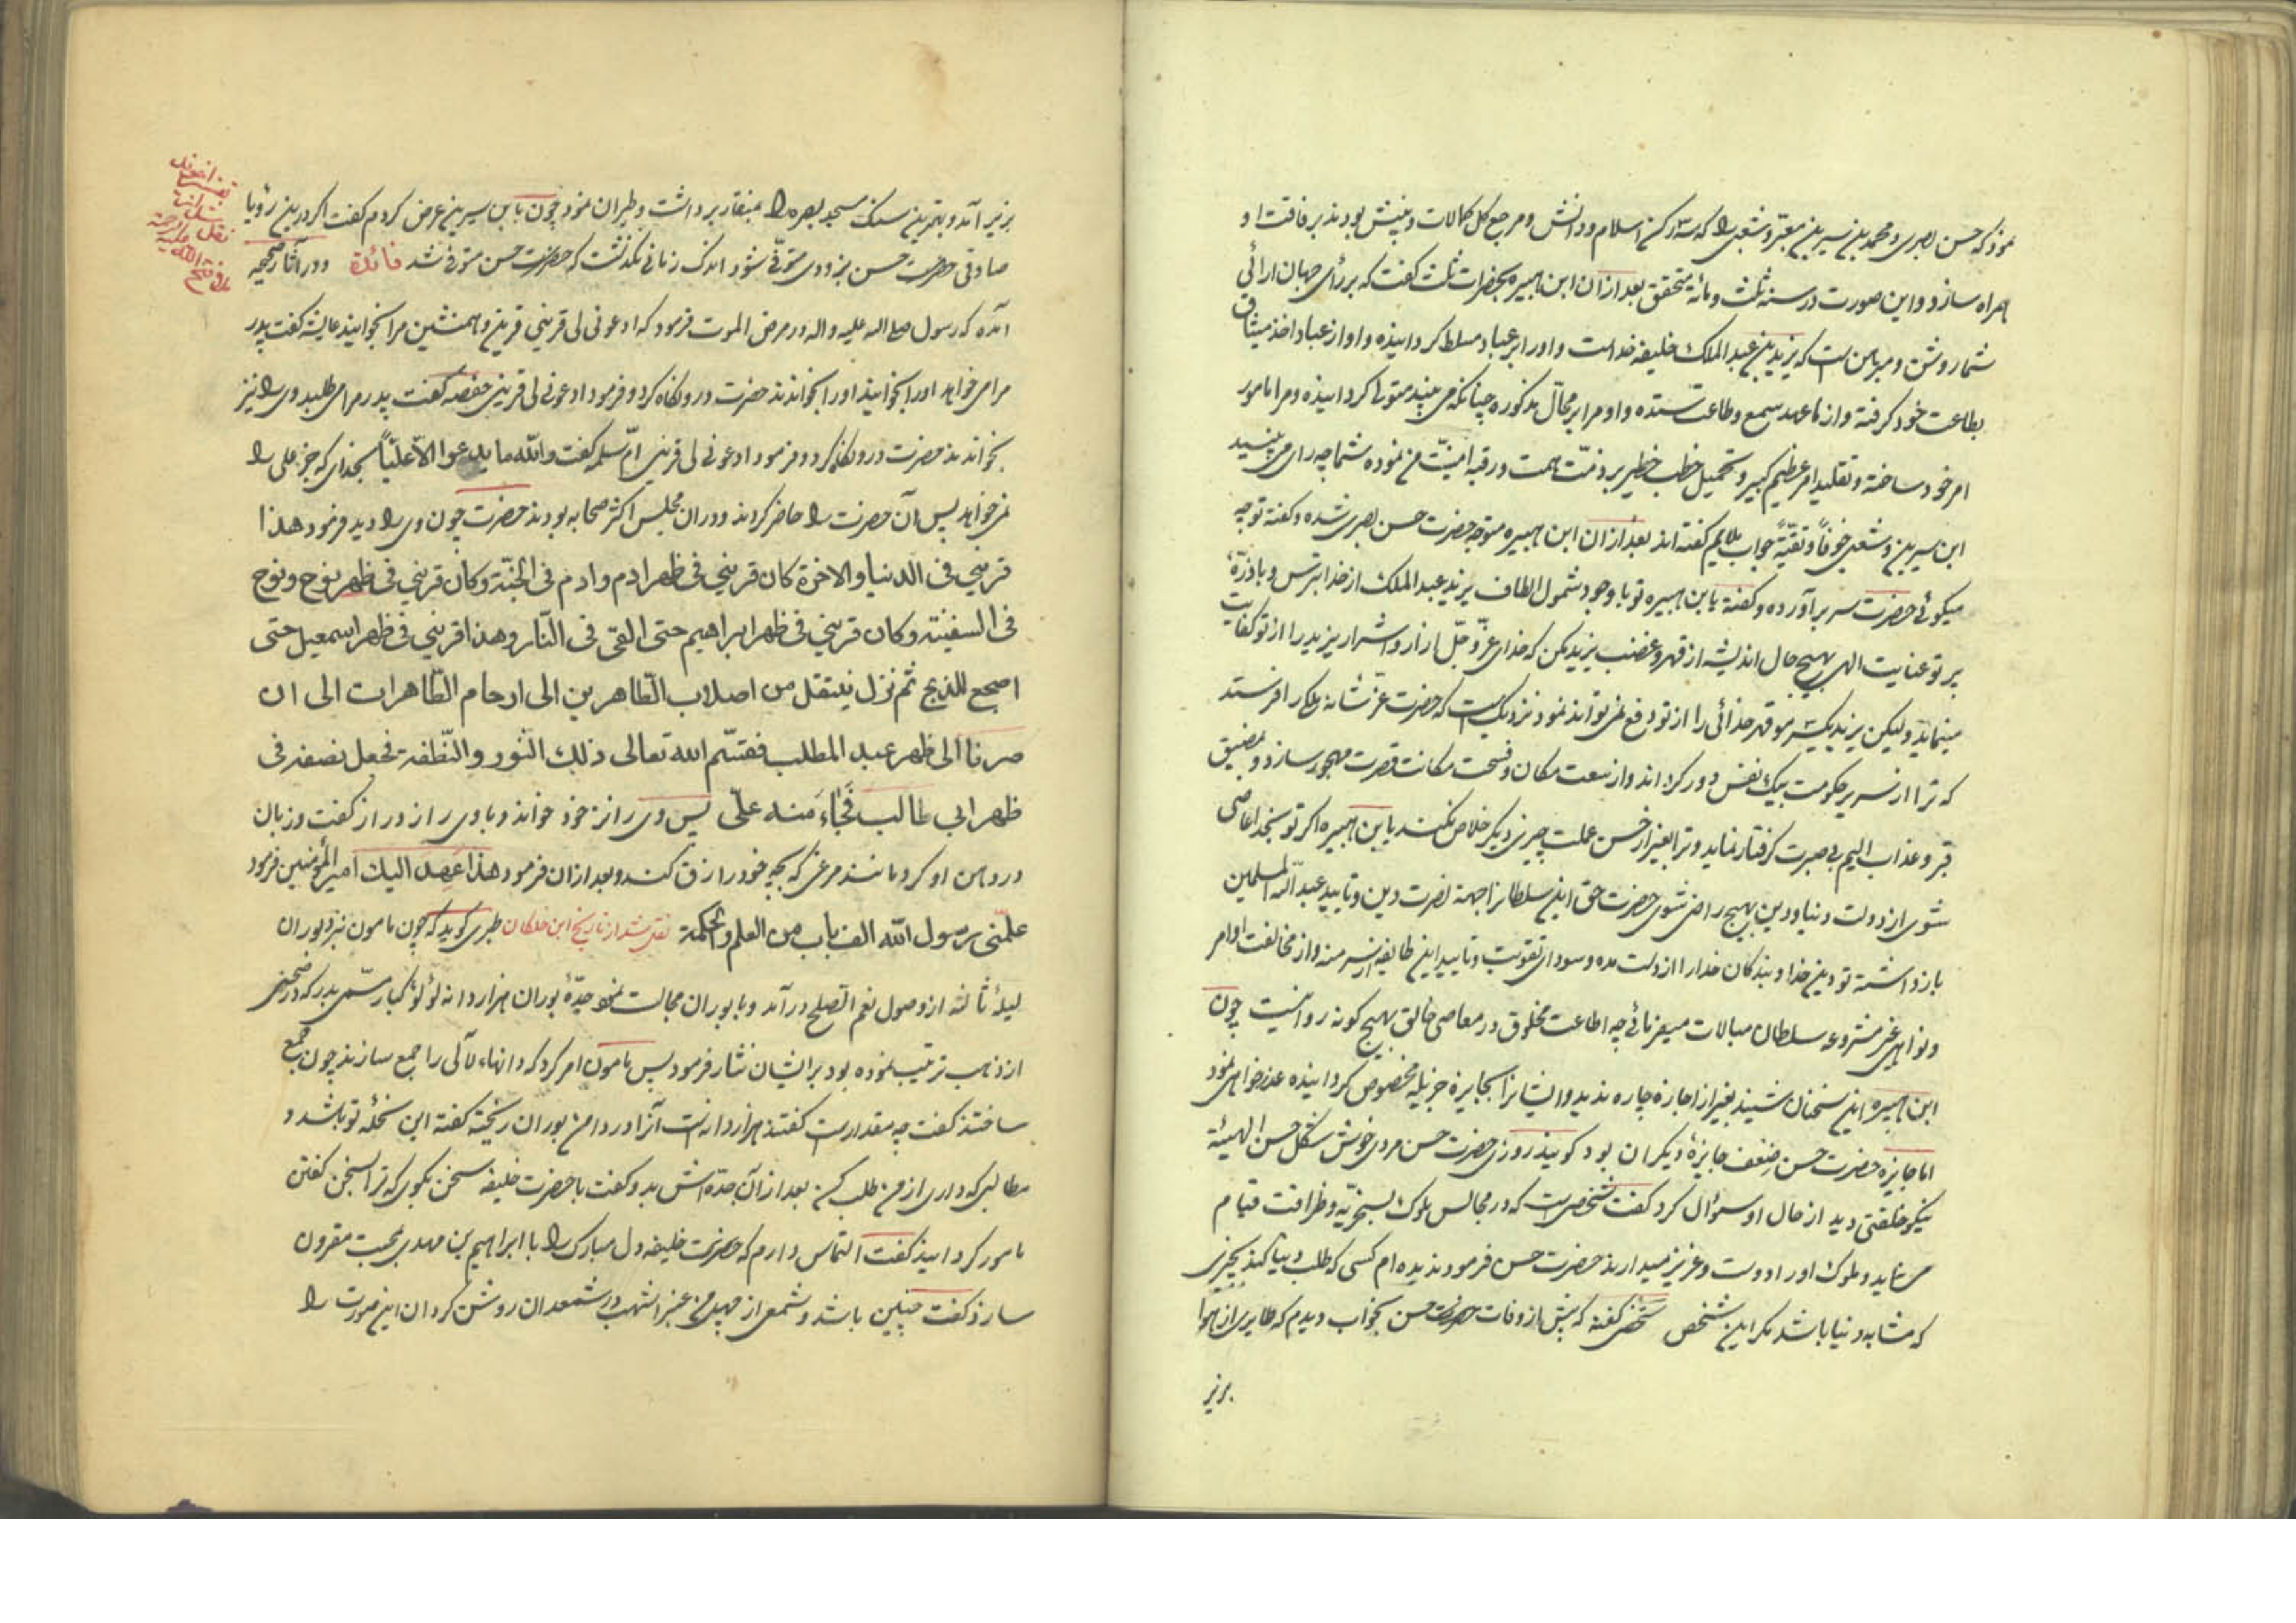 نمود که حسن بصری و محمد بن سیرین معبّر و شعبی را که سه رکن اسلام و دانش و مرجع کل کمالات و بینش بودند برفاقت او
همراه سازد و این صورت در سنه ثلث و مائة متحقق بعد ازان ابن هبیره بحضرات ثلث گفت که بر رأی جهان آرائی
شما روشن و مبرهن است که یزید بن عبد الملک خلیفه خداست و او را بر عباد مسلط کردانیده و او از عباد اخذ میثاق
بطاعت خود کرفته و از ما عهد سمع و طاعت ستده و او مرا بر محالّ مذکوره چنانکه می‌بینید متولی کردانیده و مرا مامور
امر خود ساخته و تقلید امر عظیم کبیر و تحمیل خطب خطیر بر ذمّت همت و رقبه امنیّت من نموده شما چه رای می‌بینید
ابن سیرین و شعبی خوفاً و تقیّةً جواب ملایم گفته‌اند بعد ازان ابن هبیره متوجه حضرت حسن بصری شده و گفته تو چه
میکوئی حضرت سر برآورده و گفته یا ابن هبیره تو با وجود شمول الطاف یزید عبد الملک از خدا بترس و با ذرّهٔ
پرتو عنایت الهی بهیچ حال اندیشه از قهر و غضب یزید مکن که خدای عزّ و جلّ آزار و اشرار یزید را از تو کفایت
مینماید و لیکن یزید یکسر مو قهر خدائی را از تو دفع نمی‌تواند نمود نزدیک است که حضرت عزّ شانه ملکی را فرستد
که ترا از سریر حکومت بیک نفس دور کرداند و از سعت مکان و فسحت مکانت قصرت مهجور سازد و بمضیق
قبر و عذاب الیم بی صبرت کرفتار نماید و ترا بغیر از حسن عملت چیزی دیکر خلاص نکند یا ابن هبیره اکر تو سنجد اعاصی
شوی از دولت دنیا و دین بهیچ راضی نشوی حضرت حق این سلطانرا جهة نصرت دین و تایید عبد الله المسلمین
بازداشته تو دین خدا و بندکان خدا را از دست مده و سودای تقویت و تایید این طایفه از سر منه و از مخالفت اوامر
و نواهی غیر مشروعه سلطان مبالات میفرمائی چه اطاعت مخلوق در معاصی خالق بهیچ کونه روا نیست چون
ابن هبیره این سخنان شنید بغیر از اجازه چاره ندید و ایشانرا بجایزهٔ جزیله مخصوص کردانیده عذرخواهی نمود
اما جایزه حضرت حسن ضعف جایزهٔ دیکران بود کویند روزی حضرت حسن مردی خوش شکل حسن الهیئة
نیکو خلقتی دید از حال او سؤال کرد گفت شخصی است که در مجالس ملوک بسخریّه و ظرافت قیام
می‌نماید و ملوک او را دوست و عزیز میدارند حضرت حسن فرمود ندیده‌ام کسی که طلب دنیا کند بچیزی
که مشابه دنیا باشد مکر این شخص شخصی گفته که پیش از وفات حضرت حسن بخواب دیدم که طایری از هوا
بزیر
بزیر آمد و بهترین سنک مسجد بصره را بمنقار برداشت و طیران نمود چون بابن سیرین عرض کردم گفت اکر درین رؤیا
صادقی حضرت حسن بزودی متوفّی شود اندک زمانی نکذشت که حضرت حسن متوفی شد فائدة و در آثار صحیحه
آمده که رسول صلی الله علیه و اله در مرض الموت فرمود که ادعونی لی قرینی قرین و همنشین مرا بخوانید عایشه گفت پدر
مرا می‌خواهد او را بخوانید او را بخواندند حضرت درو نکاه کرد و فرمود ادعونی لی قرینی حفصه گفت پدر مرا می‌طلبد وی را نیز
بخواندند حضرت درو نکاه کرد و فرمود ادعونی لی قرینی امّ سلمه گفت والله ما یدعوا الّا علیّاً بخدای که جز علی را
نمی‌خواهد پس آن حضرت را حاضر کردند و دران مجلس اکثر صحابه بودند حضرت چون وی را دید فرمود هذا
قرینی فی الدنیا والاخرة کان قرینی فی ظهر ادم و ادم فی الجنّة و کان قرینی فی ظهر نوح و نوح
فی السفینة و کان قرینی فی ظهر ابراهیم حتی القی فی النّار و هذا قرینی فی ظهر اسمعیل حتی
اضجع للذبح ثم نزل ینتقل من اصلاب الطّاهرین الی ارحام الطّاهرات الی ان
صرنا الی ظهر عبد المطلب فقسّم الله تعالی ذلک النور والنّطفة فجعل نصفه فی
ظهر ابی طالب فَجَاءَ منه علیّ پس وی را نزد خود خواند و با وی راز دراز گفت و زبان
در دهن او کرد مانند مرغی که بچه خود را زق کند و بعد ازان فرمود هذا عهد الیک امیر المؤمنین فرمود
علّمنی رسول الله الف باب من العلم والحکمة نقل شد از تاریخ ابن خلکان طبری کوید که چون مامون نزد بوران
لیلهٔ ثالثه از وصول نعم الصلح درآمد و با بوران مجالست نمود جدّهٔ بوران هزار دانه لؤلؤ کبار سمّی بدر که در صحنی
از ذهب ترتیب نموده بود بر ایشان نثار فرمود پس مامون امر کرد که دانهاء لآلی را جمع سازند چون جمع
ساختند گفت چه مقدار است گفتند هزار دانه است آنرا در دامن بوران ریخته گفته این نحلهٔ تو باشد و
مطالبی که داری از من طلب کن بعد از آن جدّه‌اش بدو گفت با حضرت خلیفه سخن بکوی که ترا بسخن گفتن
مامور کردانید گفت التماس دارم که حضرت خلیفه دل مبارک را با ابراهیم بن مهدی بمحبت مقرون
سازد گفت چنین باشد و شمعی از چهل من عنبر اشهب در شمعدان روشن کردان این صورت را